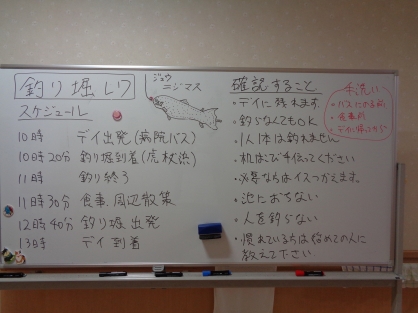 釣り堀レク
スケジュール
10時 デイ出発(病院バス)
10時20分 釣り堀到着(虎杖浜)
11時 釣り終了
11時30分 食事.周辺散策
12時40分 釣り堀出発
13時 デイ到着
ニジマス
確認すること
・デイに残れます
・釣らなくてもOK
・1人1本は釣れません
・机はこび手伝ってください
・必要ならばイスつかえます。
・池におちない
・人を釣らない
・慣れている方は始めての人に
教えて下さい
手洗い
・バスにのる前
・食事前
・デイに帰ってから